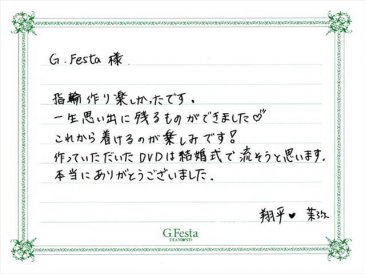 G.Festa 様
指輪作り楽しかったです。
一生思い出に残るものができました♡
これから着けるのが楽しみです!
作っていただいたDVDは結婚式で流そうと思います。
本当にありがとうございました。
翔平♥
G.Festa
DIAMOND